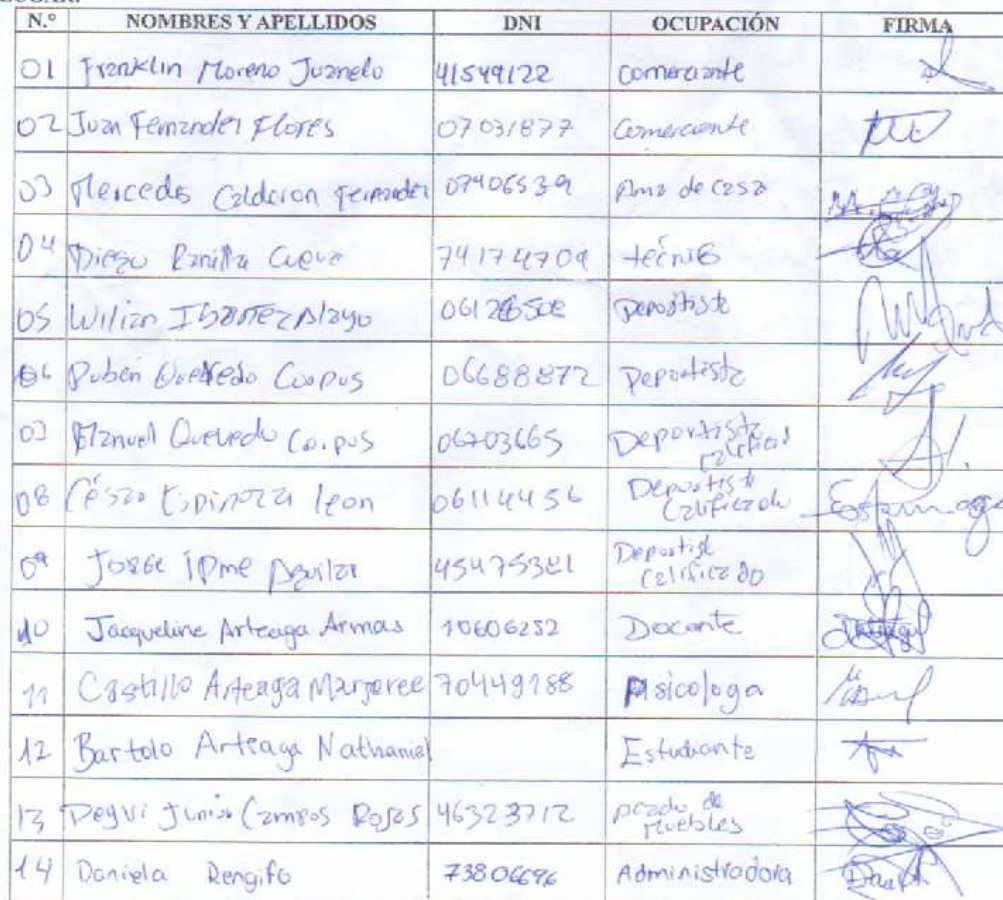 N.° NOMBRES Y APELLIDOS DNI OCUPACIÓN FIRMA
01 Franklin Moreno Juanelo 41549122 comerciante
02 Juan Fernandez Flores 07031877 Comerciante
03 Mercedes Calderon Fernandez 07406539 Ama de casa
04 Diego Cueva 74174709 técnico
05 Wilian Ibañez 06128508 Deportista
06 Ruben Quevedo Corpus 06688872 Deportista
07 Manuel Quevedo Corpus 06703665 Deportista Calificado
08 César Espinoza leon 06114456 Deportista Calificado
09 Jorge Aguilar 45475381 Deportista Calificado
10 Jacqueline Arteaga Armas 10606252 Docente
11 Castillo Arteaga Margoree 70449188 Psicologa
12 Bartolo Arteaga Nathaniel Estudiante
13 Degui Junior Campos Rojas 46323712 de Muebles
14 Daniela Rengifo 73806696 Administradora